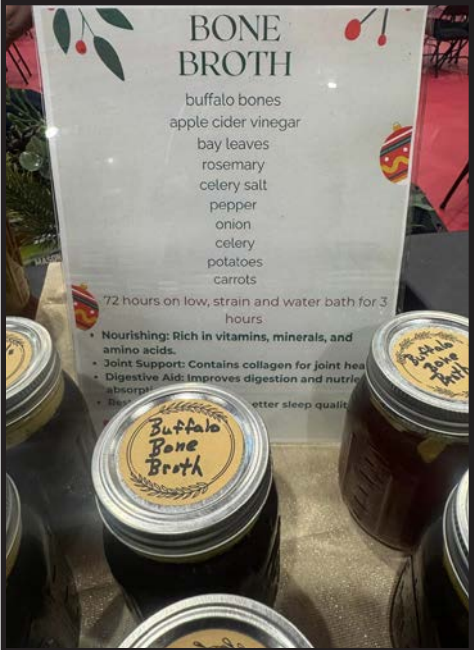 BONE
BROTH
buffalo bones
apple cider vinegar
bay leaves
rosemary
celery salt
pepper
onion
celery
potatoes
carrots
72 hours on low, strain and water bath for 3
hours
• Nourishing: Rich in vitamins, minerals, and
amino acids.
• Joint Support: Contains collagen for joint
• Digestive Aid: Improves digestion and
• etter sleep
Buffalo
Bone
Broth
Buffalo
Bone
Broth